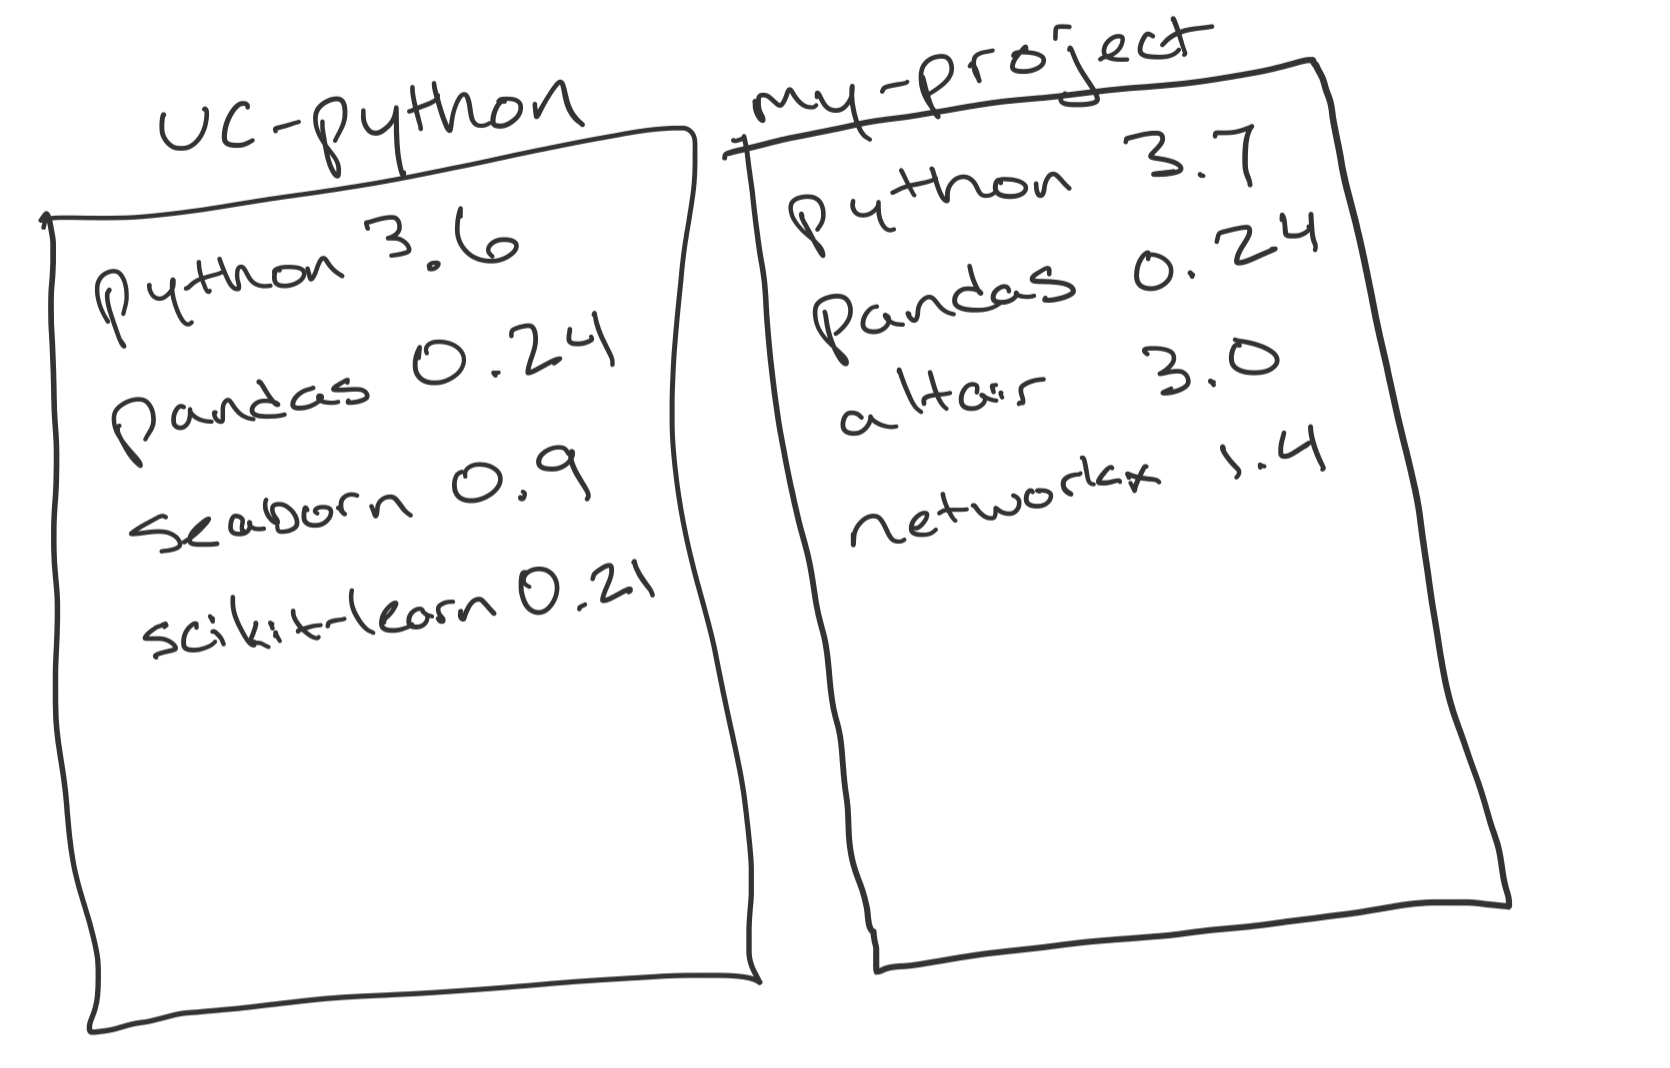 uc-python
python 3.6
pandas 0.24
seaborn 0.9
scikit-learn 0.21
my-project
python 3.7
pandas 0.24
altair 3.0
networkx 1.4